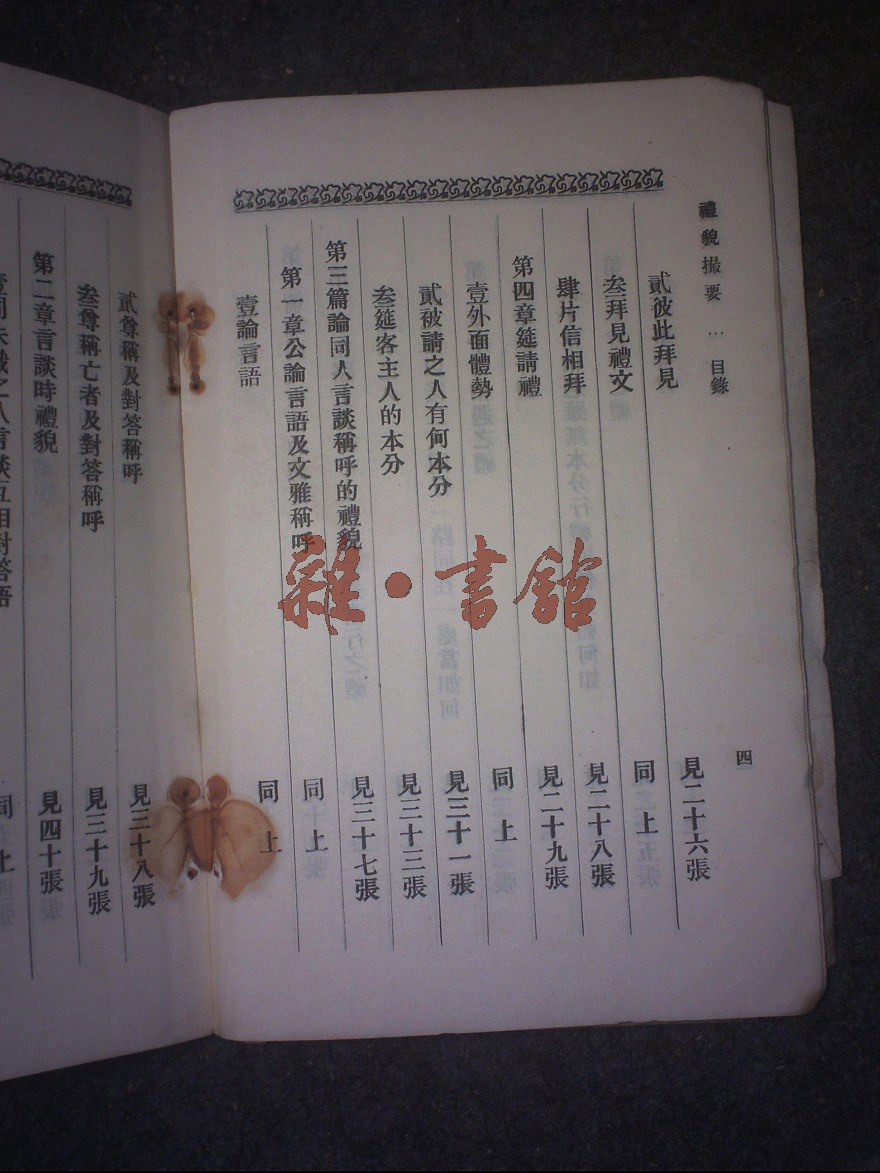 禮貌撮要 … 目錄 四
貳彼此拜見 見二十六張
叁拜見禮文 同上
肆片信相拜 見二十八張
第四章筵請禮 見二十九張
壹外面體勢 同上
貳被請之人有何本分 見三十一張
叁筵客主人的本分 見三十三張
第三篇論同人言談稱呼的禮貌 見三十七張
第一章公論言語及文雅稱呼 同上
壹論言語 同上
貳尊稱及對答稱呼 見三十八張
叁尊稱亡者及對答稱呼 見三十九張
第二章言談時禮貌 見四十張
壹同未識之人言談互相對答語 同上
雜·書館